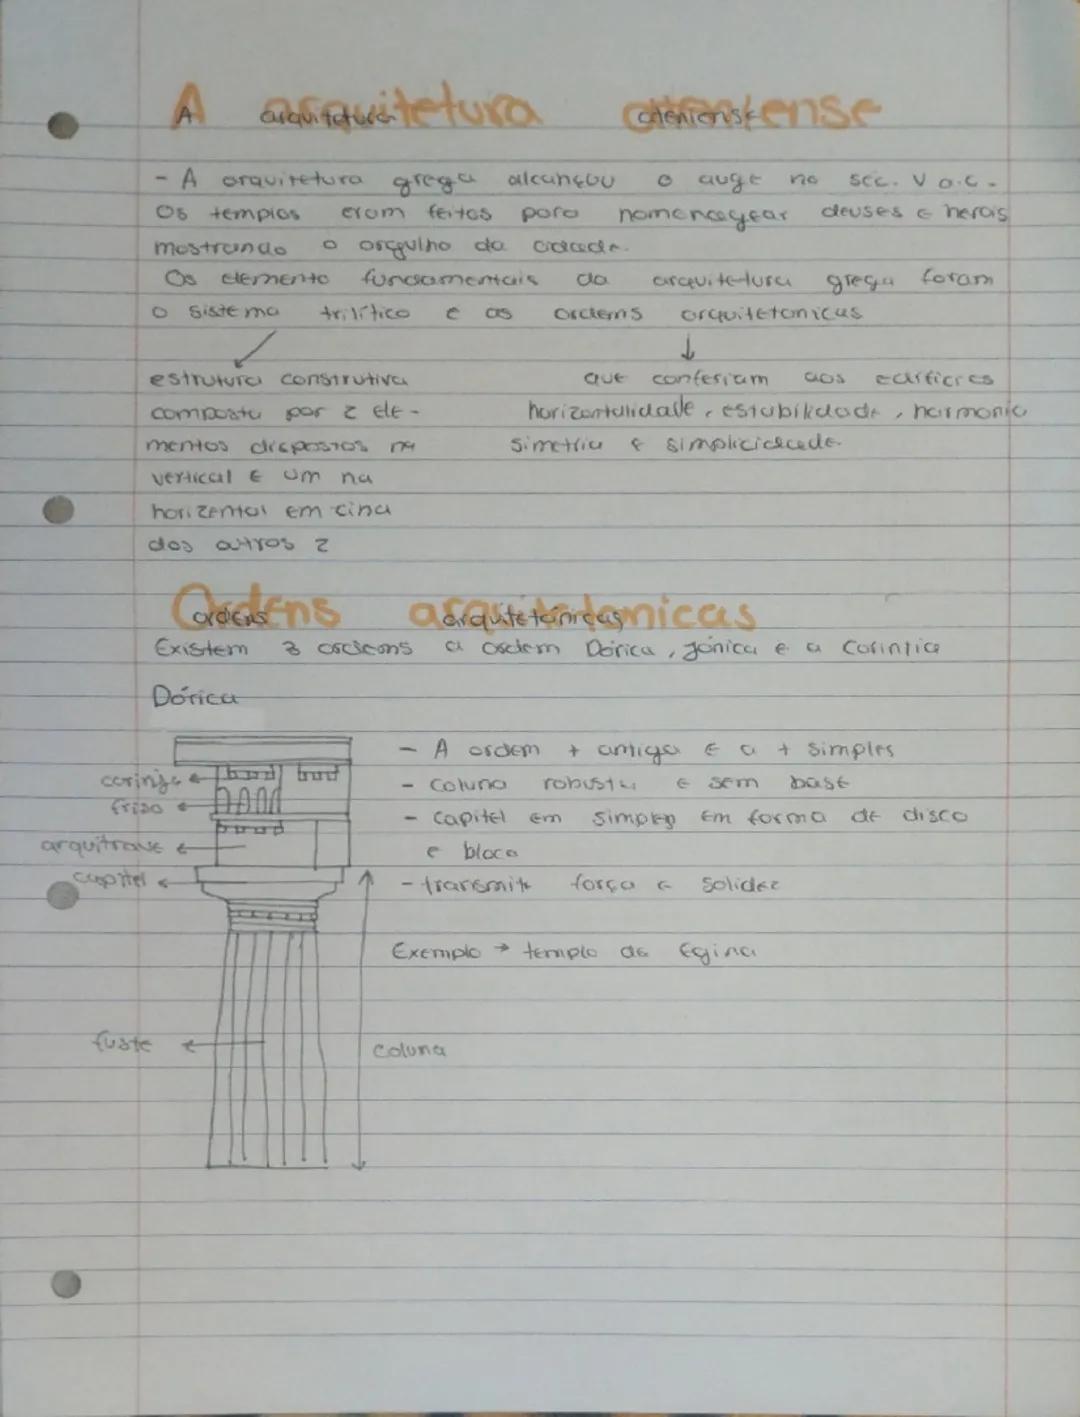 A arquitetura ateniense
- A arquitetura grega alcançou o auge no séc. V a.c.
Os templos eram feitos para homenagear deuses e herois
mostrando o orgulho da cidade.
Os elemento fundamentais da arquitetura grega foram
o sistema trilítico e as ordems arquitetonicas
estrutura construtiva
composta por 2 ele-
mentos dispostos na
vertical e um na
horizontal em cina
dos outros 2
que conferiam aos edificios
horizontalidade, estabilidade, harmonia
simetria e simplicidade.
Ordens arquitetónicas
Existem 3 ordems a ordem Dórica, jónica e a Coríntia
Dórica
- A ordem + antiga e a + simples
- coluna robusta e sem base
- capitel em simples em forma de disco
e bloco
- transmite força e solidez
Exemplo → templo de Egina
corinja
friso
arquitrave
capitel
fuste
coluna